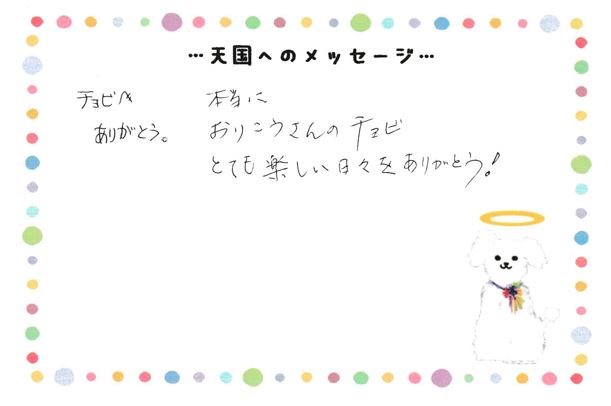 …天国へのメッセージ…
チョビへ
ありがとう。
本当に
おりこうさんのチョビ
とても楽しい日々をありがとう!